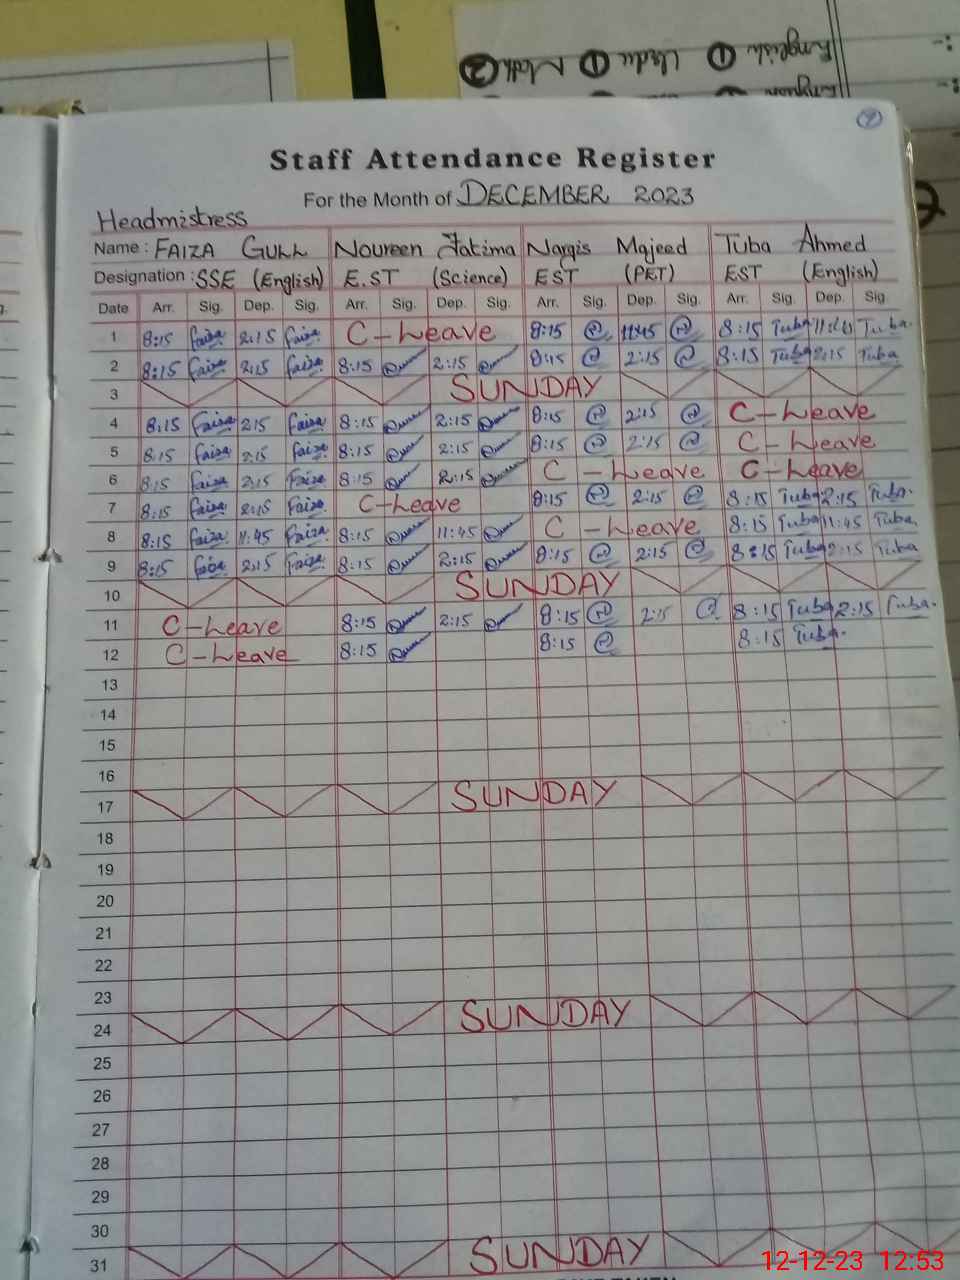 English ① Urdu ① Math ②
⑨
Staff Attendance Register
For the Month of DECEMBER 2023
Headmistress
Name : FAIZA GULL Noureen Fatima Nargis Majeed Tuba Ahmed
Designation : SSE (English) E.ST (Science) EST (PET) EST (English)
Date Arr. Sig. Dep. Sig. Arr. Sig. Dep. Sig. Arr. Sig. Dep. Sig. Arr. Sig. Dep. Sig.
1 8:15 Faiza 2:15 Faiza C-Leave 8:15 11:45 8:15 Tuba Tuba
2 8:15 Faiza 2:15 Faiza 8:15 2:15 8:15 2:15 8:15 Tuba 2:15 Tuba
3 SUNDAY
4 8:15 Faiza 2:15 Faiza 8:15 2:15 8:15 2:15 C-Leave
5 8:15 Faiza 2:15 Faiza 8:15 2:15 8:15 2:15 C-Leave
6 8:15 Faiza 2:15 Faiza 8:15 2:15 C-Leave C-Leave
7 8:15 Faiza 2:15 Faiza C-Leave 8:15 2:15 8:15 Tuba 2:15 Tuba
8 8:15 Faiza 11:45 Faiza 8:15 11:45 C-Leave 8:15 Tuba 11:45 Tuba
9 8:15 Faiza 2:15 Faiza 8:15 2:15 8:15 2:15 8:15 Tuba 2:15 Tuba
10 SUNDAY
11 C-Leave 8:15 2:15 8:15 2:15 8:15 Tuba 2:15 Tuba
12 C-Leave 8:15 8:15 8:15 Tuba
13
14
15
16
17 SUNDAY
18
19
20
21
22
23
24 SUNDAY
25
26
27
28
29
30
31 SUNDAY
12-12-23 12:53